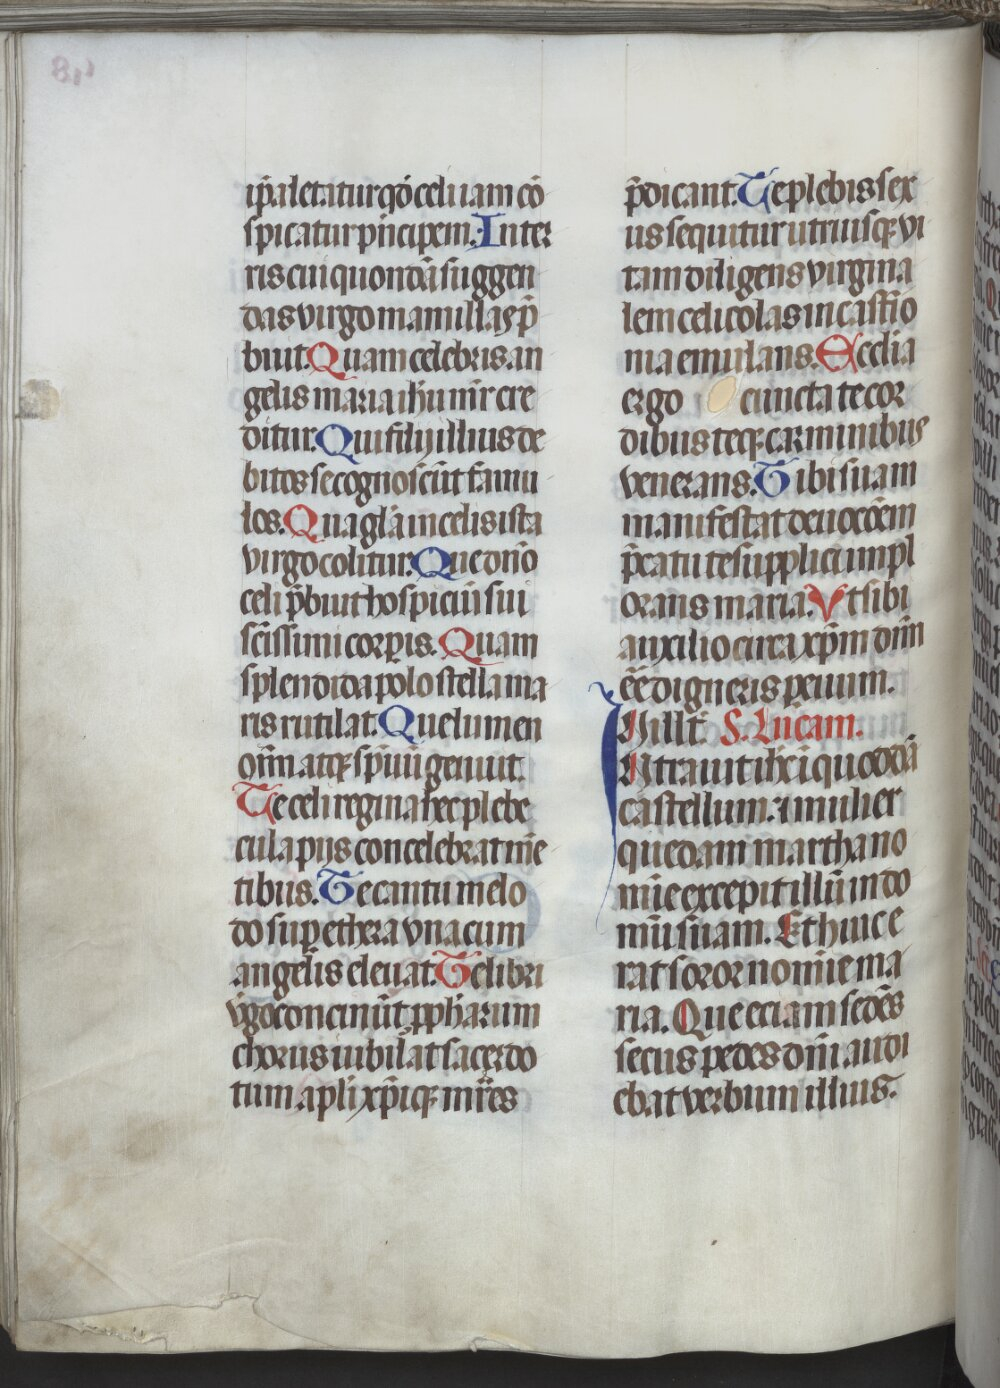 ip̄a letatur qō celi iam cō
spicatur pͥncipem. Inter
ris cui quondā suggen
das virgo mamillas p̄
buit. Quam celebris an
gelis maria ih̄u mr̄ cre
ditur. Qui filij illius de
bitos se cognoscūt famu
los. Qua gl̄a in celis ista
virgo colitur. Que dn̄o
celi p̄buit hospiciū sui
sc̄issimi corꝑis. Quam
splendida polo stella ma
ris rutilat. Que lumen
om̄ atqꝫ sp̄uū genuit.
Te celi regina hec plebe
cula pijs concelebrat mē
tibus. Te cantu melo
do suꝑ ethera vna cum
angelis eleuat. Te libri
v̄go concinūt ꝓph̄arum
chorus iubilat sacerdo
tum apl̄i xp̄iqꝫ mr̄es
p̄dicant. Te plebis sex
us sequitur utriusqꝫ vi
tam diligens virgina
lem celicolas in castīo
nia emulans. Eccl̄ia
ergo cuncta te cor
dibus teqꝫ carminibus
venerans. Tibi suam
manifestat deuocōem
p̄catu te supplici impl
orans maria. Vt sibi
auxilio circa xp̄m dn̄m
ēe digneris ꝑ euum.
In illt̄. S. Lucam.
Intrauit ih̄c i quoddā
castellum. ⁊ mulier
quedam martha no
mīe excepit illū in do
mū suam. Et huic e
rat soror nomīe ma
ria. Que eciam sedēs
secus pedes dn̄i audi
ebat verbum illius.